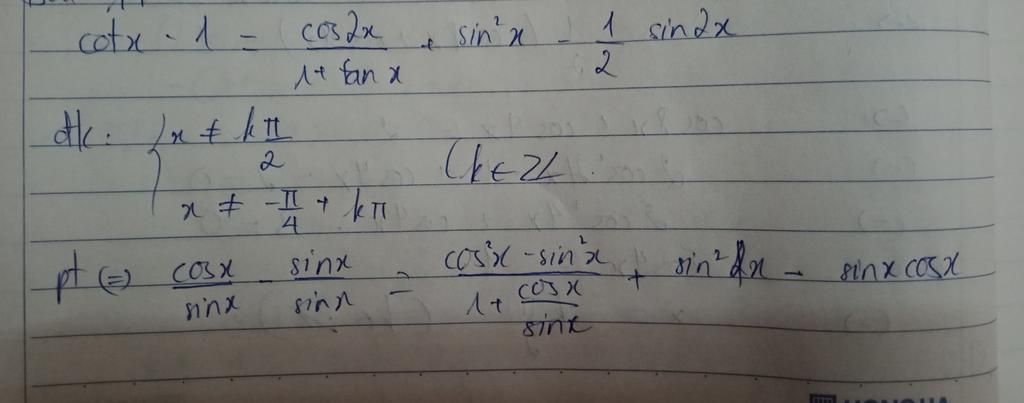 cotx - 1 = cos2x / (1 + tan x) + sin²x - 1/2 sin2x
đk: { x ≠ kπ/2
x ≠ -π/4 + kπ (k ∈ Z.
pt (=) cosx/sinx - sinx/sinx = (cos²x - sin²x) / (1 + cosx/sinx) + sin²x - sinx cosx